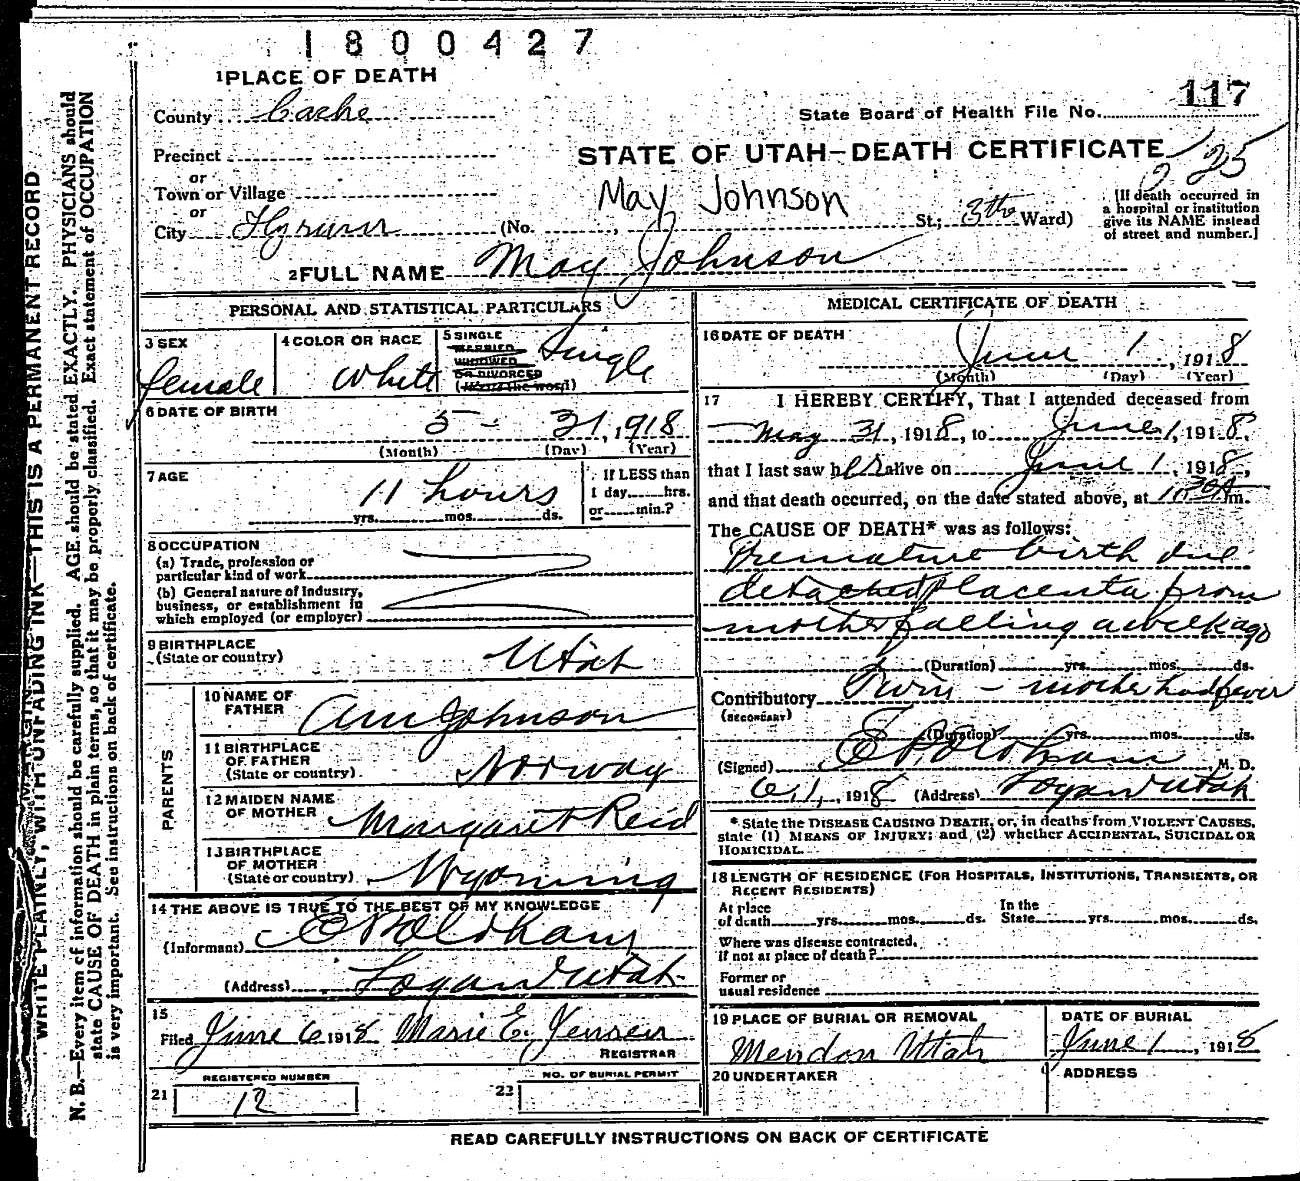 1800427
1 PLACE OF DEATH
County Cache
State Board of Health File No. 117
Precinct
STATE OF UTAH—DEATH CERTIFICATE
225
or
Town or Village
May Johnson
or
City Hyrum (No. , St.; 3th Ward)
[If death occurred in a hospital or institution give its NAME instead of street and number.]
2 FULL NAME May Johnson
PERSONAL AND STATISTICAL PARTICULARS
3 SEX
female
4 COLOR OR RACE
White
5 SINGLE
MARRIED
WIDOWED
OR DIVORCED
(Write the word)
Single
6 DATE OF BIRTH
5 - 31, 1918
(Month) (Day) (Year)
7 AGE
11 hours
yrs. mos. ds.
If LESS than
1 day hrs.
or min.?
8 OCCUPATION
(a) Trade, profession or
particular kind of work
(b) General nature of Industry,
business, or establishment in
which employed (or employer)
9 BIRTHPLACE
(State or country) Utah
PARENTS
10 NAME OF
FATHER Johnson
11 BIRTHPLACE
OF FATHER
(State or country) Norway
12 MAIDEN NAME
OF MOTHER Margaret Reid
13 BIRTHPLACE
OF MOTHER
(State or country) Wyoming
14 THE ABOVE IS TRUE TO THE BEST OF MY KNOWLEDGE
(Informant) E P Oldham
(Address) Logan Utah
15
Filed June 6 1918 Marie E. Jensen
REGISTRAR
REGISTERED NUMBER
21 12
NO. OF BURIAL PERMIT
22
MEDICAL CERTIFICATE OF DEATH
16 DATE OF DEATH
June 1, 1918
(Month) (Day) (Year)
17 I HEREBY CERTIFY, That I attended deceased from
May 31, 1918, to June 1, 1918,
that I last saw her alive on June 1, 1918,
and that death occurred, on the date stated above, at m.
The CAUSE OF DEATH* was as follows:
Premature birth due
detached placenta from
mother falling a week ago
(Duration) yrs. mos. ds.
Contributory Twin - mother had fever
(SECONDARY)
(Duration) yrs. mos. ds.
(Signed) E P Oldham M. D.
6, 1, 1918 (Address) Logan Utah
* State the DISEASE CAUSING DEATH, or, in deaths from VIOLENT CAUSES,
state (1) MEANS OF INJURY; and (2) whether ACCIDENTAL, SUICIDAL OR
HOMICIDAL.
18 LENGTH OF RESIDENCE (FOR HOSPITALS, INSTITUTIONS, TRANSIENTS, OR
RECENT RESIDENTS)
At place In the
of death yrs. mos. ds. State yrs. mos. ds.
Where was disease contracted,
if not at place of death?
Former or
usual residence
19 PLACE OF BURIAL OR REMOVAL
Mendon Utah
DATE OF BURIAL
June 1, 1918
20 UNDERTAKER
ADDRESS
READ CAREFULLY INSTRUCTIONS ON BACK OF CERTIFICATE
WRITE PLAINLY, WITH UNFADING INK—THIS IS A PERMANENT RECORD
N. B.—Every item of information should be carefully supplied. AGE should be stated EXACTLY. PHYSICIANS should
state CAUSE OF DEATH in plain terms, so that it may be properly classified. Exact statement of OCCUPATION
is very important. See instructions on back of certificate.